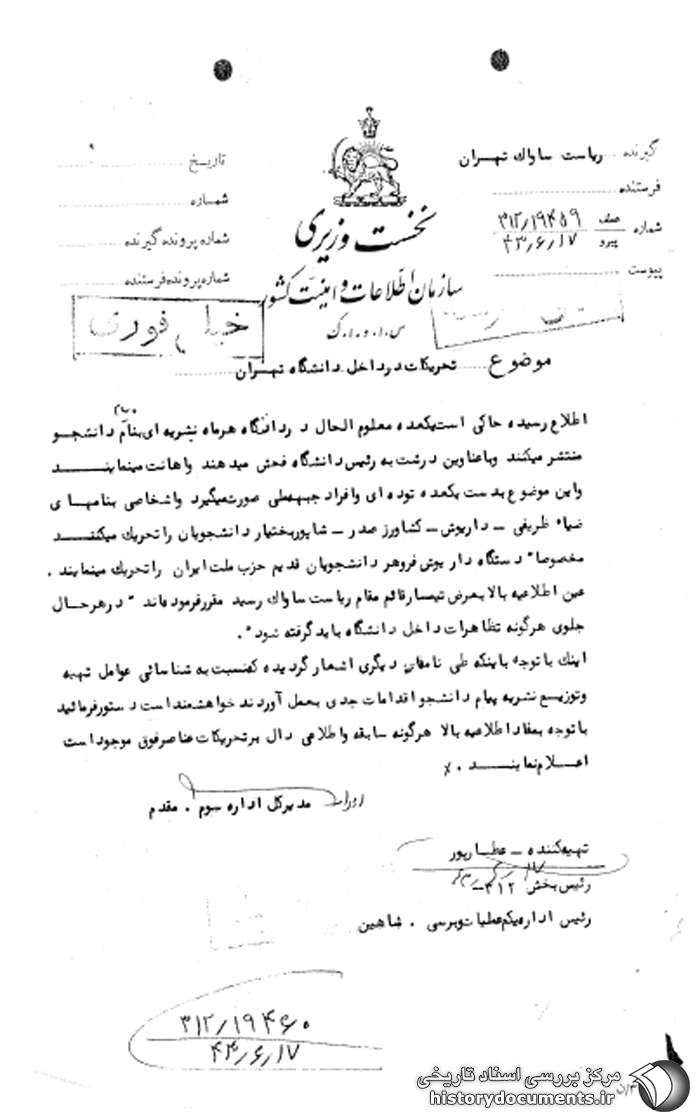 گیرنده ریاست ساواک تهران
فرستنده
شماره عطف ۳۱۲/۱۹۴۵۹
پیرو ۴۳/۶/۱۷
پیوست
تاریخ
شماره
شماره پرونده گیرنده
شماره پرونده فرستنده
نخست وزیری
سازمان اطلاعات و امنیت کشور
س.ا.و.ا.ک
فوری
موضوع تحریکات در داخل دانشگاه تهران
پیام
اطلاع رسیده حاکی است یکعده معلوم الحال در دانشگاه هرماه نشریه ای بنام دانشجو
منتشر میکنند و باعناوین درشت به رئیس دانشگاه فحش میدهند و اهانت مینمایند
واین موضوع بدست یکعده توده ای وافراد جبهه ملی صورت میگیرد واشخاصی بنامهای
ضیاء ظریفی - داریوش - کشاورز صدر - شاپور بختیار دانشجویان را تحریک میکنند
مخصوصا" دستگاه داریوش فروهر دانشجویان قدیم حزب ملت ایران را تحریک مینمایند .
عین اطلاعیه بالا بعرض تیمسار قائم مقام ریاست ساواک رسید مقرر فرموده اند " در هر حال
جلوی هرگونه تظاهرات داخل دانشگاه باید گرفته شود".
اینک با توجه باینکه طی نامه های دیگری اشعار گردیده که نسبت به شناسائی عوامل تهیه
وتوزیع نشریه پیام دانشجو اقدامات جدی بعمل آوردند خواهشمند است دستور فرمائید
با توجه بمفاد اطلاعیه بالا هرگونه سابقه واطلاعی دال بر تحریکات عناصر فوق موجود است
اعلام نمایند .
مدیر کل اداره سوم . مقدم
تهیه کننده - عطارپور
رئیس بخش ۳۱۲-
رئیس اداره یکم عملیات وبررسی . شاهین
۳۱۲/۱۹۴۶۰
۴۳/۶/۱۷
مرکز بررسی اسناد تاریخی
historydocuments.ir